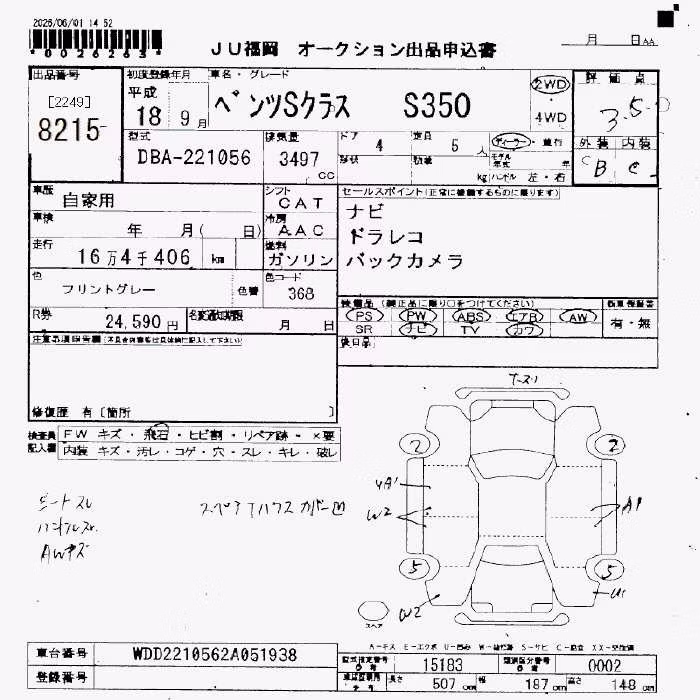 2026/06/01 14 52
*0026263*
JU福岡 オークション出品申込書
月 日AA
出品番号
[2249]
8215
初度登録年月
平成
18 9月
車名・グレード
ベンツSクラス S350
2WD
4WD
評価点
3.5
外装 内装
B C
型式
DBA-221056
排気量
3497
CC
ドア 4
定員 5 人
形状
積載
kg
ディーラー・並行
モデル年式 年
ハンドル 左・右
車歴 自家用
車検 年 月( 日)
走行 16万4千406 km
色 フリントグレー 色替
シフト CAT
冷房 AAC
燃料 ガソリン
色コード 368
セールスポイント(正常に機能するものに限ります)
ナビ
ドラレコ
バックカメラ
R券 24,590円
名変通知期限 月 日
装備品 (純正品に限り○をつけてください)
PS PW ABS エアB AW
SR ナビ TV カワ
新車保証書
有・無
後日品
注意事項報告欄(不具合内容等は具体的に記入して下さい)
修復歴 有〔箇所 〕
検査員記入欄
FW キズ・飛石・ヒビ割・リペア跡・×要
内装 キズ・汚レ・コゲ・穴・スレ・キレ・破レ
シートスレ
ハンドルスレ
AWキズ
2 2
A1
W2
5 5
W2
スペア
A-キズ E-エクボ U-凹み W-補修跡 S-サビ C-腐食 XX-交換済
車台番号 WDD2210562A051938
登録番号
型式指定番号 15183
類別区分番号 0002
長さ 507 cm 幅 187 cm 高さ 148 cm